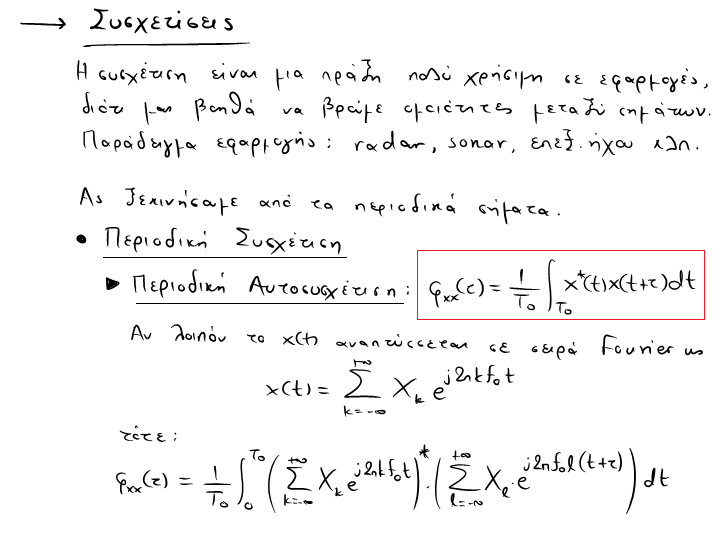 → Συσχετίσεις
Η συσχέτιση είναι μια πράξη πολύ χρήσιμη σε εφαρμογές,
διότι μας βοηθά να βρούμε ομοιότητες μεταξύ σημάτων.
Παράδειγμα εφαρμογής: radar, sonar, επεξ. ήχου κλπ.
Ας ξεκινήσουμε από τα περιοδικά σήματα.
• Περιοδική Συσχέτιση
▶ Περιοδική Αυτοσυσχέτιση: φ_xx(τ) = 1/T₀ ∫_T₀ x*(t)x(t+τ)dt
Αν λοιπόν το x(t) αναπτύσσεται σε σειρά Fourier ως
x(t) = Σ_{k=-∞}^{+∞} X_k e^{j2πkf₀t}
τότε:
φ_xx(τ) = 1/T₀ ∫_0^{T₀} (Σ_{k=-∞}^{+∞} X_k e^{j2πkf₀t})* · (Σ_{l=-∞}^{+∞} X_l · e^{j2πf₀l(t+τ)}) dt